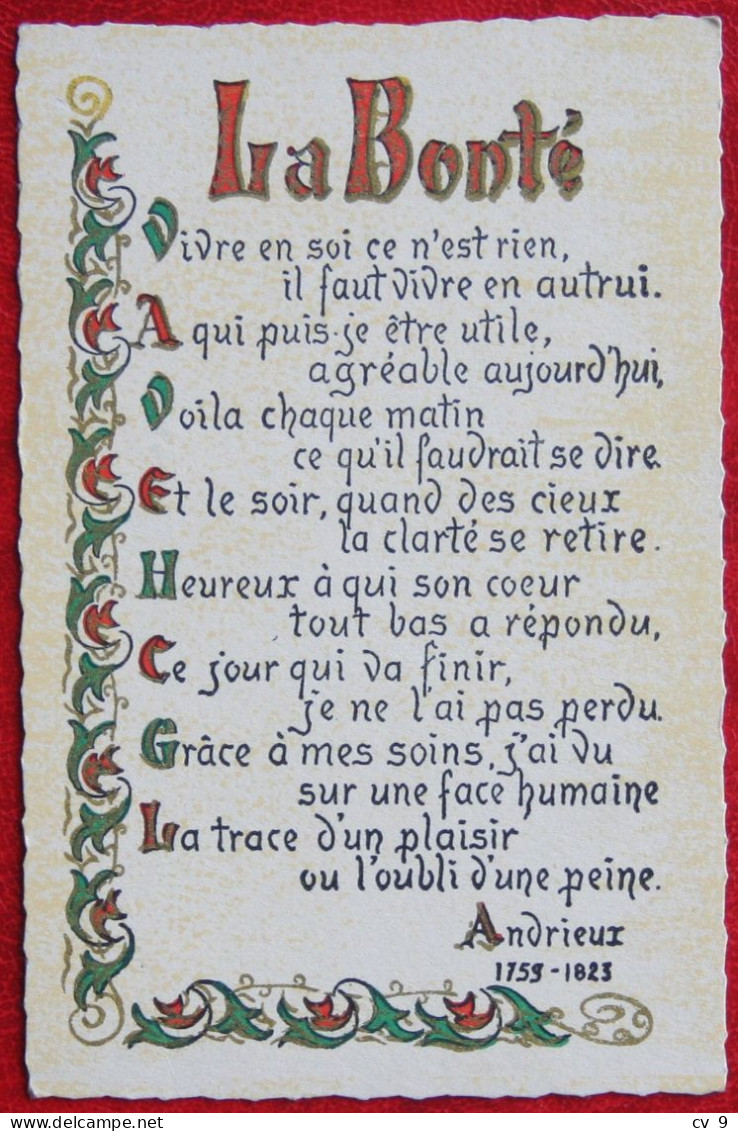 La Bonté
Vivre en soi ce n'est rien,
il faut vivre en autrui.
A qui puis-je être utile,
agréable aujourd'hui,
Voila chaque matin
ce qu'il faudrait se dire.
Et le soir, quand des cieux
la clarté se retire.
Heureux à qui son coeur
tout bas a répondu,
Ce jour qui va finir,
je ne l'ai pas perdu.
Grâce à mes soins, j'ai vu
sur une face humaine
La trace d'un plaisir
ou l'oubli d'une peine.
Andrieux
1759-1823
cv 9